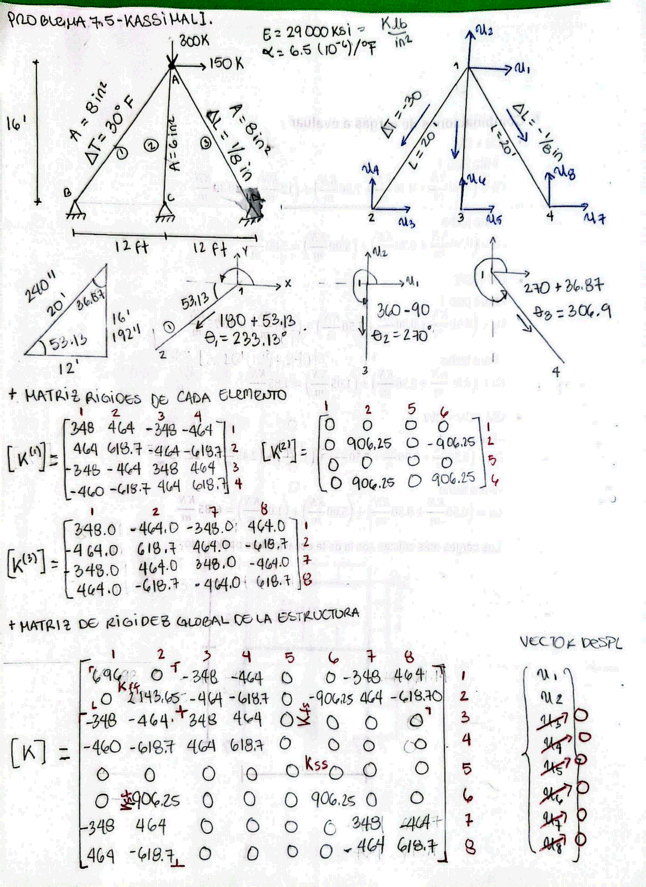 PROBLEMA 7.5-KASSIMALI.
E = 29000 Ksi = Klb/in²
α = 6.5 (10⁻⁶)/°F
300K
150 K
A
16'
A = 8in²
ΔT = 30°F
①
②
A = 6in²
③
A = 8in²
ΔL = 1/8 in
B
C
12 ft
12 ft
u2
1
u1
ΔT = -30
L = 20'
ΔL = -1/8 in
L = 20'
u4
u6
u8
2
u3
3
u5
4
u7
240"
20'
36.87
16'
192"
53.13
12'
Y
X
53.13
1
①
2
180 + 53.13
θ1 = 233.13°
u2
1
u1
360-90
θ2 = 270°
3
1
270 + 36.87
θ3 = 306.9
4
+ MATRIZ RIGIDES DE CADA ELEMENTO
1 2 3 4
[K⁽¹⁾] =
348 464 -348 -464 1
464 618.7 -464 -618.7 2
-348 -464 348 464 3
-460 -618.7 464 618.7 4
1 2 5 6
[K⁽²⁾] =
0 0 0 0 1
0 906.25 0 -906.25 2
0 0 0 0 5
0 906.25 0 906.25 6
1 2 7 8
[K⁽³⁾] =
348.0 -464.0 -348.0 464.0 1
-464.0 618.7 464.0 -618.7 2
-348.0 464.0 348.0 -464.0 7
464.0 -618.7 -464.0 618.7 8
+ MATRIZ DE RIGIDEZ GLOBAL DE LA ESTRUCTURA
VECTOR DESPL
1 2 3 4 5 6 7 8
[K] =
696 0 -348 -464 0 0 -348 464 1
Kff
0 2143.65 -464 -618.7 0 -906.25 464 -618.70 2
-348 -464 348 464 0 Kfs 0 0 0 3
-460 -618.7 464 618.7 0 0 0 0 4
Kss
0 0 0 0 0 0 0 0 5
0 906.25 0 0 0 906.25 0 0 6
-348 464 0 0 0 0 348 -464 7
464 -618.7 0 0 0 0 -464 618.7 8
u1
u2
u3 0
u4 0
u5 0
u6 0
u7 0
u8 0